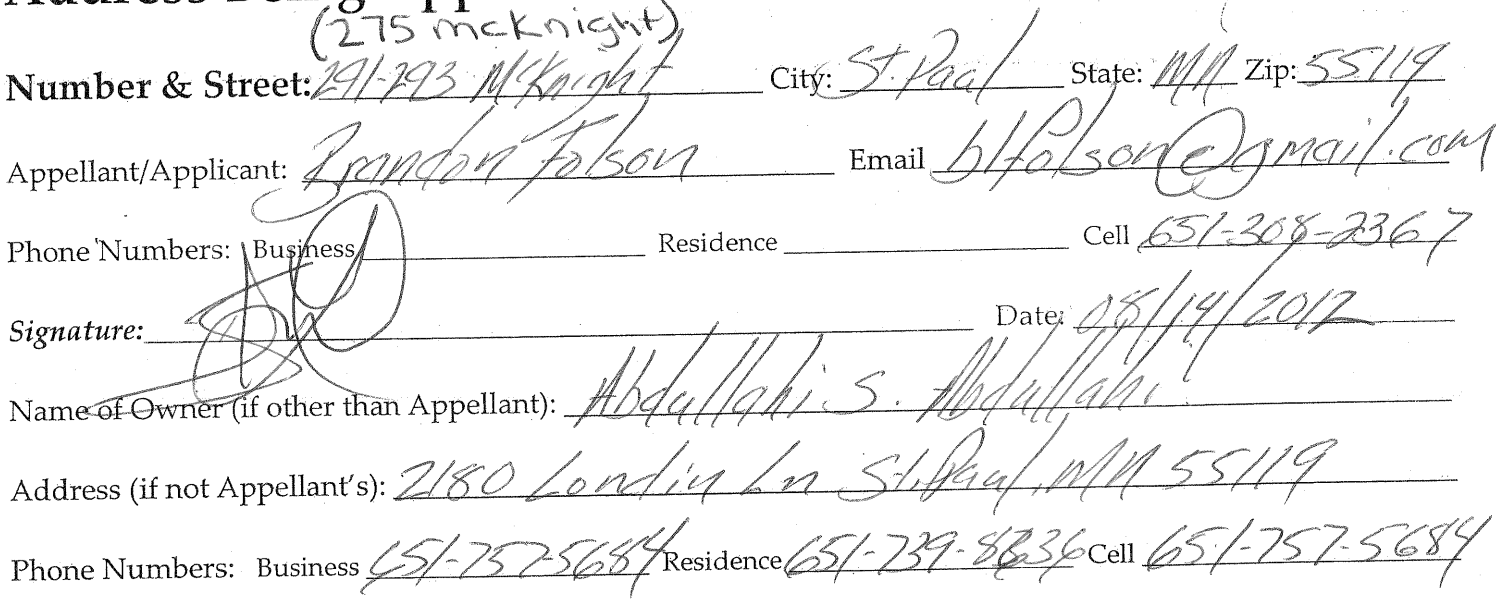 (275 mcKnight)
Number & Street: 291-293 McKnight City: St. Paul State: MN Zip: 55119
Appellant/Applicant: Brandon Folson Email blfolson@gmail.com
Phone Numbers: Business Residence Cell 651-308-2367
Signature: Date: 08/14/2012
Name of Owner (if other than Appellant): Abdullahi S. Abdullahi
Address (if not Appellant's): 2180 Londin Ln St. Paul, MN 55119
Phone Numbers: Business 651-757-5684 Residence Cell 651-757-5684